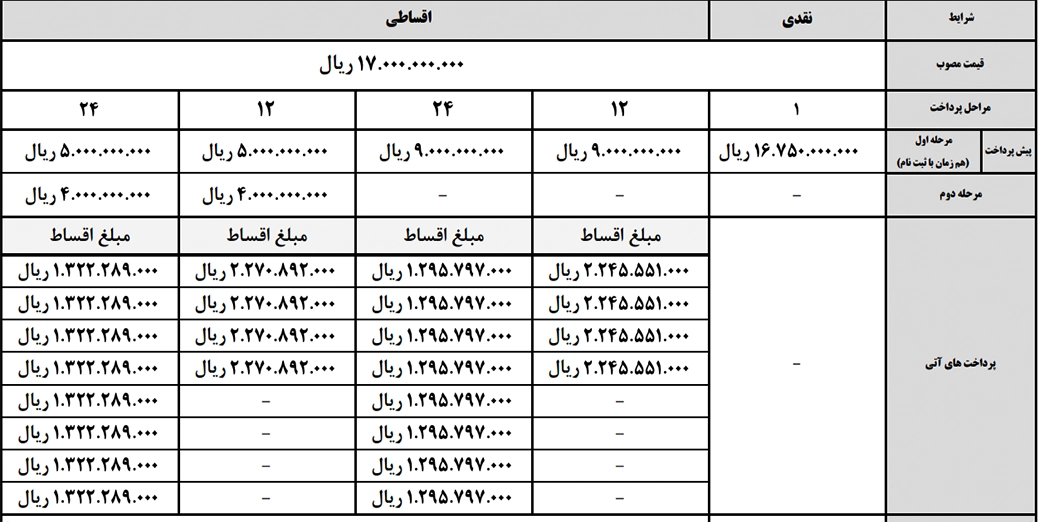 شرایط نقدی اقساطی
قیمت مصوب ۱۷.۰۰۰.۰۰۰.۰۰۰ ریال
مراحل پرداخت ۱ ۱۲ ۲۴ ۱۲ ۲۴
پیش پرداخت
مرحله اول
(هم زمان با ثبت نام)
۱۶.۷۵۰.۰۰۰.۰۰۰ ریال ۹.۰۰۰.۰۰۰.۰۰۰ ریال ۹.۰۰۰.۰۰۰.۰۰۰ ریال ۵.۰۰۰.۰۰۰.۰۰۰ ریال ۵.۰۰۰.۰۰۰.۰۰۰ ریال
مرحله دوم – – – ۴.۰۰۰.۰۰۰.۰۰۰ ریال ۴.۰۰۰.۰۰۰.۰۰۰ ریال
مبلغ اقساط مبلغ اقساط مبلغ اقساط مبلغ اقساط
۲.۲۴۵.۵۵۱.۰۰۰ ریال ۱.۲۹۵.۷۹۷.۰۰۰ ریال ۲.۲۷۰.۸۹۲.۰۰۰ ریال ۱.۳۲۲.۲۸۹.۰۰۰ ریال
۲.۲۴۵.۵۵۱.۰۰۰ ریال ۱.۲۹۵.۷۹۷.۰۰۰ ریال ۲.۲۷۰.۸۹۲.۰۰۰ ریال ۱.۳۲۲.۲۸۹.۰۰۰ ریال
۲.۲۴۵.۵۵۱.۰۰۰ ریال ۱.۲۹۵.۷۹۷.۰۰۰ ریال ۲.۲۷۰.۸۹۲.۰۰۰ ریال ۱.۳۲۲.۲۸۹.۰۰۰ ریال
پرداخت های آتی – ۲.۲۴۵.۵۵۱.۰۰۰ ریال ۱.۲۹۵.۷۹۷.۰۰۰ ریال ۲.۲۷۰.۸۹۲.۰۰۰ ریال ۱.۳۲۲.۲۸۹.۰۰۰ ریال
– ۱.۲۹۵.۷۹۷.۰۰۰ ریال – ۱.۳۲۲.۲۸۹.۰۰۰ ریال
– ۱.۲۹۵.۷۹۷.۰۰۰ ریال – ۱.۳۲۲.۲۸۹.۰۰۰ ریال
– ۱.۲۹۵.۷۹۷.۰۰۰ ریال – ۱.۳۲۲.۲۸۹.۰۰۰ ریال
– ۱.۲۹۵.۷۹۷.۰۰۰ ریال – ۱.۳۲۲.۲۸۹.۰۰۰ ریال